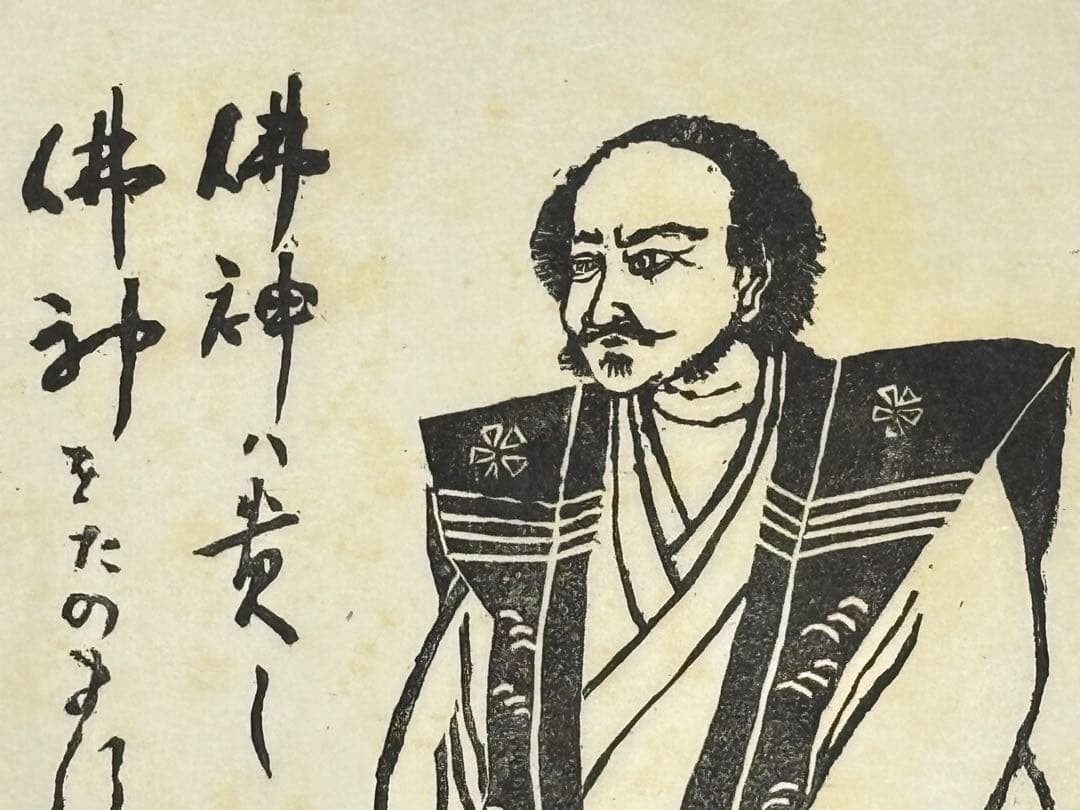 佛神ハ貴し
佛神をたのま